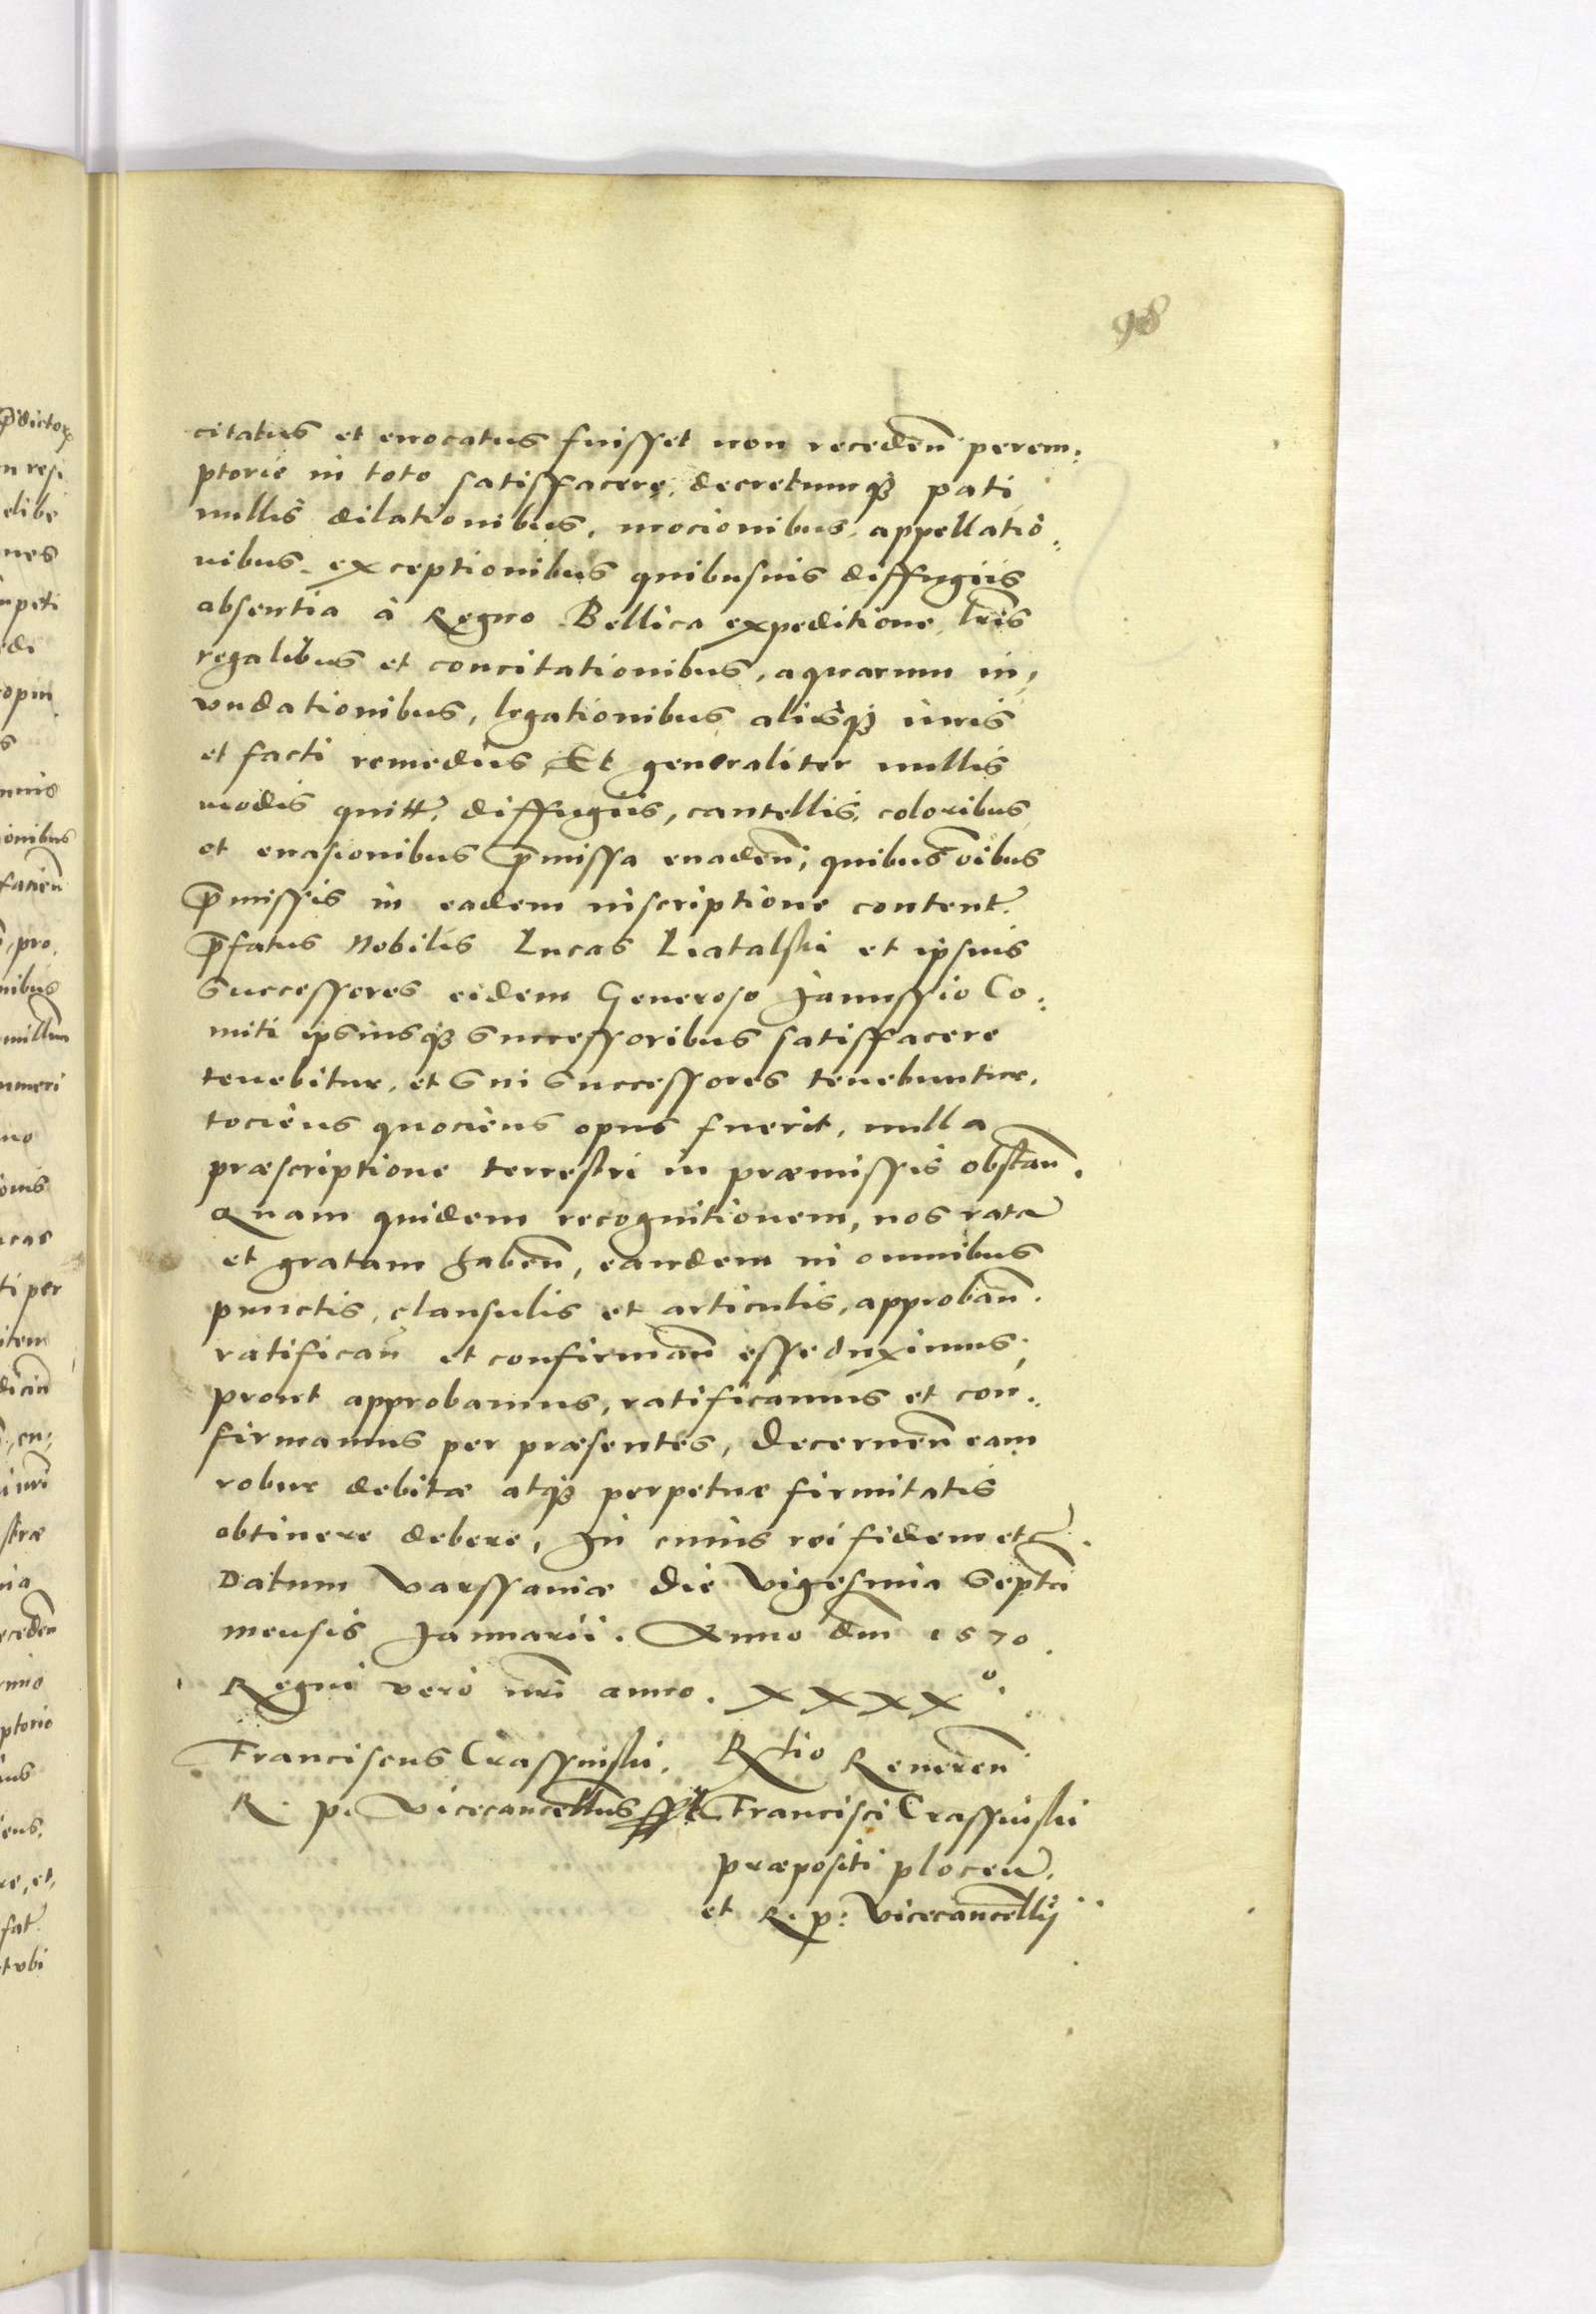 98
citatus et euocatus fuisset non recedeñ perem:
ptorie in toto satisffacere, decretumqȝ pati
nullis dilationibus, mocionibus, appellatio:
nibus, exceptionibus quibusuis diffugiis
absentia à Regno Bellica expeditione, lris
regalibus et concitationibus, aquarum in,
undationibus, legationibus aliisqȝ iuris
et facti remediis, Et generaliter nullis
modis quitt. diffugiis, cautellis, coloribus
et euasionibus p̄missa euadeñ, quibus oībus
p̄missis in eadem inscriptione content.
p̄fatus Nobilis Lucas Liatalski et ipsius
Successores eidem Generoso Janussio Co:
miti ipsiusqȝ Successoribus satisffacere
tenebitur, et Sui Successores tenebuntur.
tociens quociens opus fuerit, nulla
præscriptione terrestri in præmissis obstañ.
Quam quidem recognitionem, nos ratã
et gratam habeñ, eandem in omnibus
punctis, clausulis et articulis, approbañ.
ratificañ et confirmañ esse duximus,
prout approbamus, ratificamus et con:
firmamus per præsentes, Decerneñ eam
robur debitæ atqȝ perpetuæ firmitatis
obtinere debere, In cuius rei fidem etc̃.
Datum Varssauiæ Die Vigesima Septĩa
mensis Januarii. Anno dm̃ 1570.
Regni vero nr̃i anno. XXXX°.
Franciscus Crassinski. R̃tio Reuereñ
R. p. Vicecancellrius sspt Francisci Crassinski
præpositi ploceñ.
et R. p: Vicecancellrij
p̄dictorꝝ
n resi
elibe
nes
mpeti
edi
ionibus
facieñ
pro
nibus
umeri
ti per
item
en:
stræ
cedeñ
ptorio
ens.
re, et,
t vbi